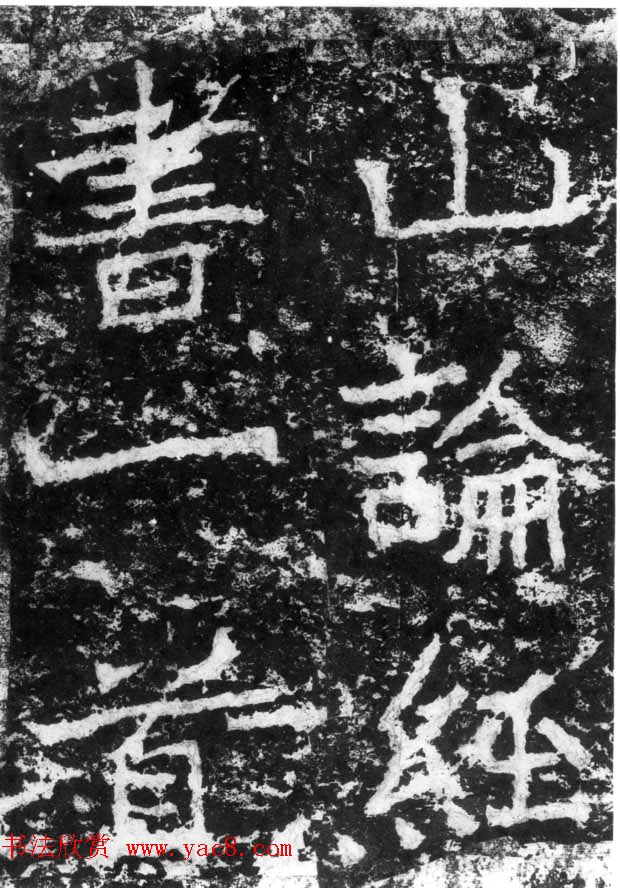 山論經
書一首
书法欣赏 www.yac8.com